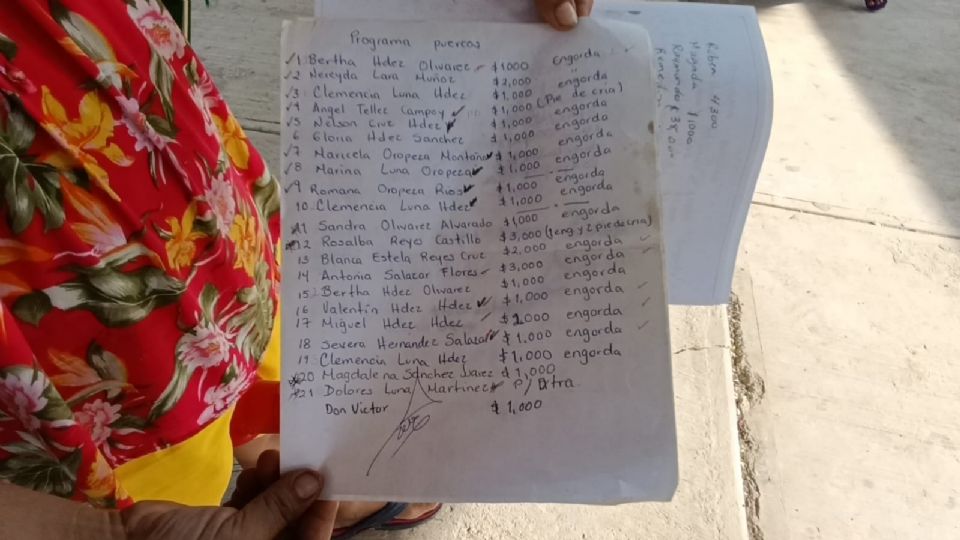 Programa puercas
1 Bertha Hdez Olivarez $1000 engorda
2 Nereyda Lara Muñoz $2,000 engorda
3 Clemencia Luna Hdez $1.000 engorda
4 Angel Tellez Campoy $1,000 (Pie de cria)
5 Nelson Cruz Hdez $1,000 engorda
6 Gloria Hdez Sanchez $1,000 engorda
7 Maricela Oropeza Montaño $1,000 engorda
8 Marina Luna Oropeza $1.000 engorda
9 Romana Oropeza Rios $1,000 engorda
10 Clemencia Luna Hdez $1,000 engorda
11 Sandra Olivarez Alvarado $1,000 engorda
12 Rosalba Reyes Castillo $3,000 (1 eng y 2 pie de cria)
13 Blanca Estela Reyes Cruz $2,000 engorda
14 Antonia Salazar Flores $3,000 engorda
15 Bertha Hdez Olivarez $1,000 engorda
16 Valentin Hdez Hdez $1,000 engorda
17 Miguel Hdez Hdez $2,000 engorda
18 Severa Hernandez Salazar $1.000 engorda
19 Clemencia Luna Hdez $1,000 engorda
20 Magdalena Sanchez Juarez $1,000
21 Dolores Luna Martinez P/ Extra
Don Victor $1,000
4300
$1000